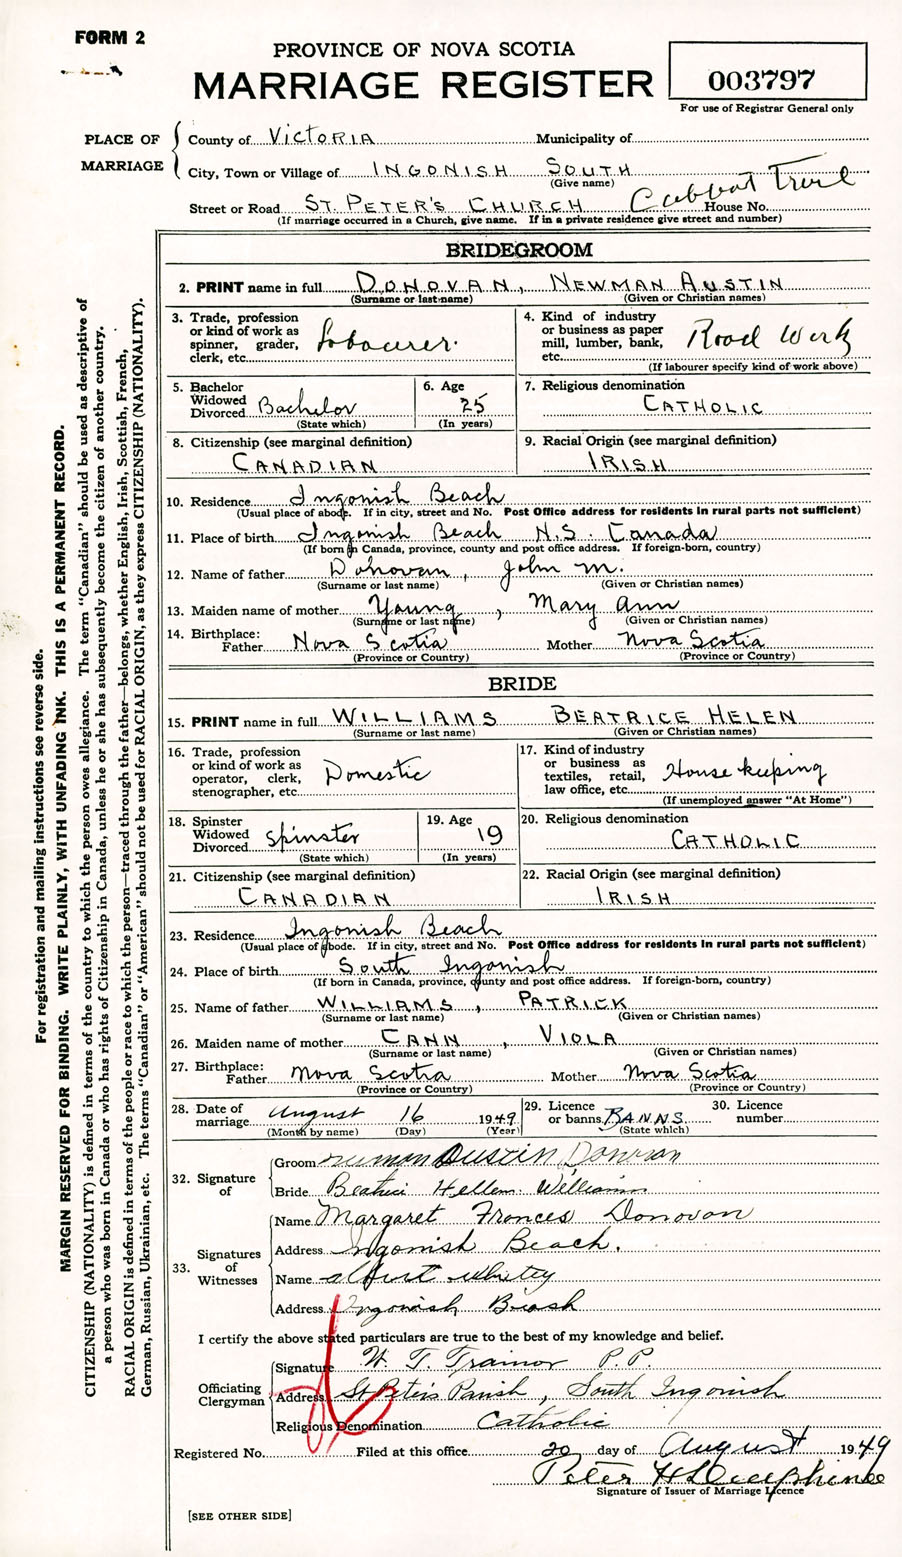 FORM 2
PROVINCE OF NOVA SCOTIA
MARRIAGE REGISTER
003797
For use of Registrar General only
PLACE OF MARRIAGE
County of Victoria Municipality of
City, Town or Village of Ingonish South
(Give name)
Street or Road St. Peter's Church Cabbot Trail House No.
(If marriage occurred in a Church, give name. If in a private residence give street and number)
BRIDEGROOM
2. PRINT name in full Donovan, Newman Austin
(Surname or last name) (Given or Christian names)
3. Trade, profession or kind of work as spinner, grader, clerk, etc. Labourer.
4. Kind of industry or business as paper mill, lumber, bank, etc. Road Work
(If labourer specify kind of work above)
5. Bachelor Widowed Divorced Bachelor
(State which)
6. Age 25
(In years)
7. Religious denomination
Catholic
8. Citizenship (see marginal definition)
Canadian
9. Racial Origin (see marginal definition)
Irish
10. Residence Ingonish Beach
(Usual place of abode. If in city, street and No. Post Office address for residents in rural parts not sufficient)
11. Place of birth Ingonish Beach N.S. Canada
(If born in Canada, province, county and post office address. If foreign-born, country)
12. Name of father Donovan, John M.
(Surname or last name) (Given or Christian names)
13. Maiden name of mother Young, Mary Ann
(Surname or last name) (Given or Christian names)
14. Birthplace: Father Nova Scotia Mother Nova Scotia
(Province or Country) (Province or Country)
BRIDE
15. PRINT name in full Williams Beatrice Helen
(Surname or last name) (Given or Christian names)
16. Trade, profession or kind of work as operator, clerk, stenographer, etc. Domestic
17. Kind of industry or business as textiles, retail, law office, etc. House keeping
(If unemployed answer "At Home")
18. Spinster Widowed Divorced Spinster
(State which)
19. Age 19
(In years)
20. Religious denomination
Catholic
21. Citizenship (see marginal definition)
Canadian
22. Racial Origin (see marginal definition)
Irish
23. Residence Ingonish Beach
(Usual place of abode. If in city, street and No. Post Office address for residents in rural parts not sufficient)
24. Place of birth South Ingonish
(If born in Canada, province, county and post office address. If foreign-born, country)
25. Name of father Williams, Patrick
(Surname or last name) (Given or Christian names)
26. Maiden name of mother Cann, Viola
(Surname or last name) (Given or Christian names)
27. Birthplace: Father Nova Scotia Mother Nova Scotia
(Province or Country) (Province or Country)
28. Date of marriage August 16 1949
(Month by name) (Day) (Year)
29. Licence or banns Banns
(State which)
30. Licence number
32. Signature of
Groom Austin Donovan
Bride Beatrice Hellen Williams
33. Signatures of Witnesses
Name Margaret Frances Donovan
Address Ingonish Beach.
Name Albert Whitty
Address Ingonish Beach
I certify the above stated particulars are true to the best of my knowledge and belief.
Officiating Clergyman
Signature W. T. Trainor P.P.
Address St Peters Parish, South Ingonish
Religious Denomination Catholic
Registered No. Filed at this office 20 day of August 1949
Peter H
Signature of Issuer of Marriage Licence
[SEE OTHER SIDE]
For registration and mailing instructions see reverse side.
MARGIN RESERVED FOR BINDING. WRITE PLAINLY, WITH UNFADING INK. THIS IS A PERMANENT RECORD.
CITIZENSHIP (NATIONALITY) is defined in terms of the country to which the person owes allegiance. The term "Canadian" should be used as descriptive of
a person who was born in Canada or who has rights of Citizenship in Canada, unless he or she has subsequently become the citizen of another country.
RACIAL ORIGIN is defined in terms of the people or race to which the person—traced through the father—belongs, whether English, Irish, Scottish, French,
German, Russian, Ukrainian, etc. The terms "Canadian" or "American" should not be used for RACIAL ORIGIN, as they express CITIZENSHIP (NATIONALITY).